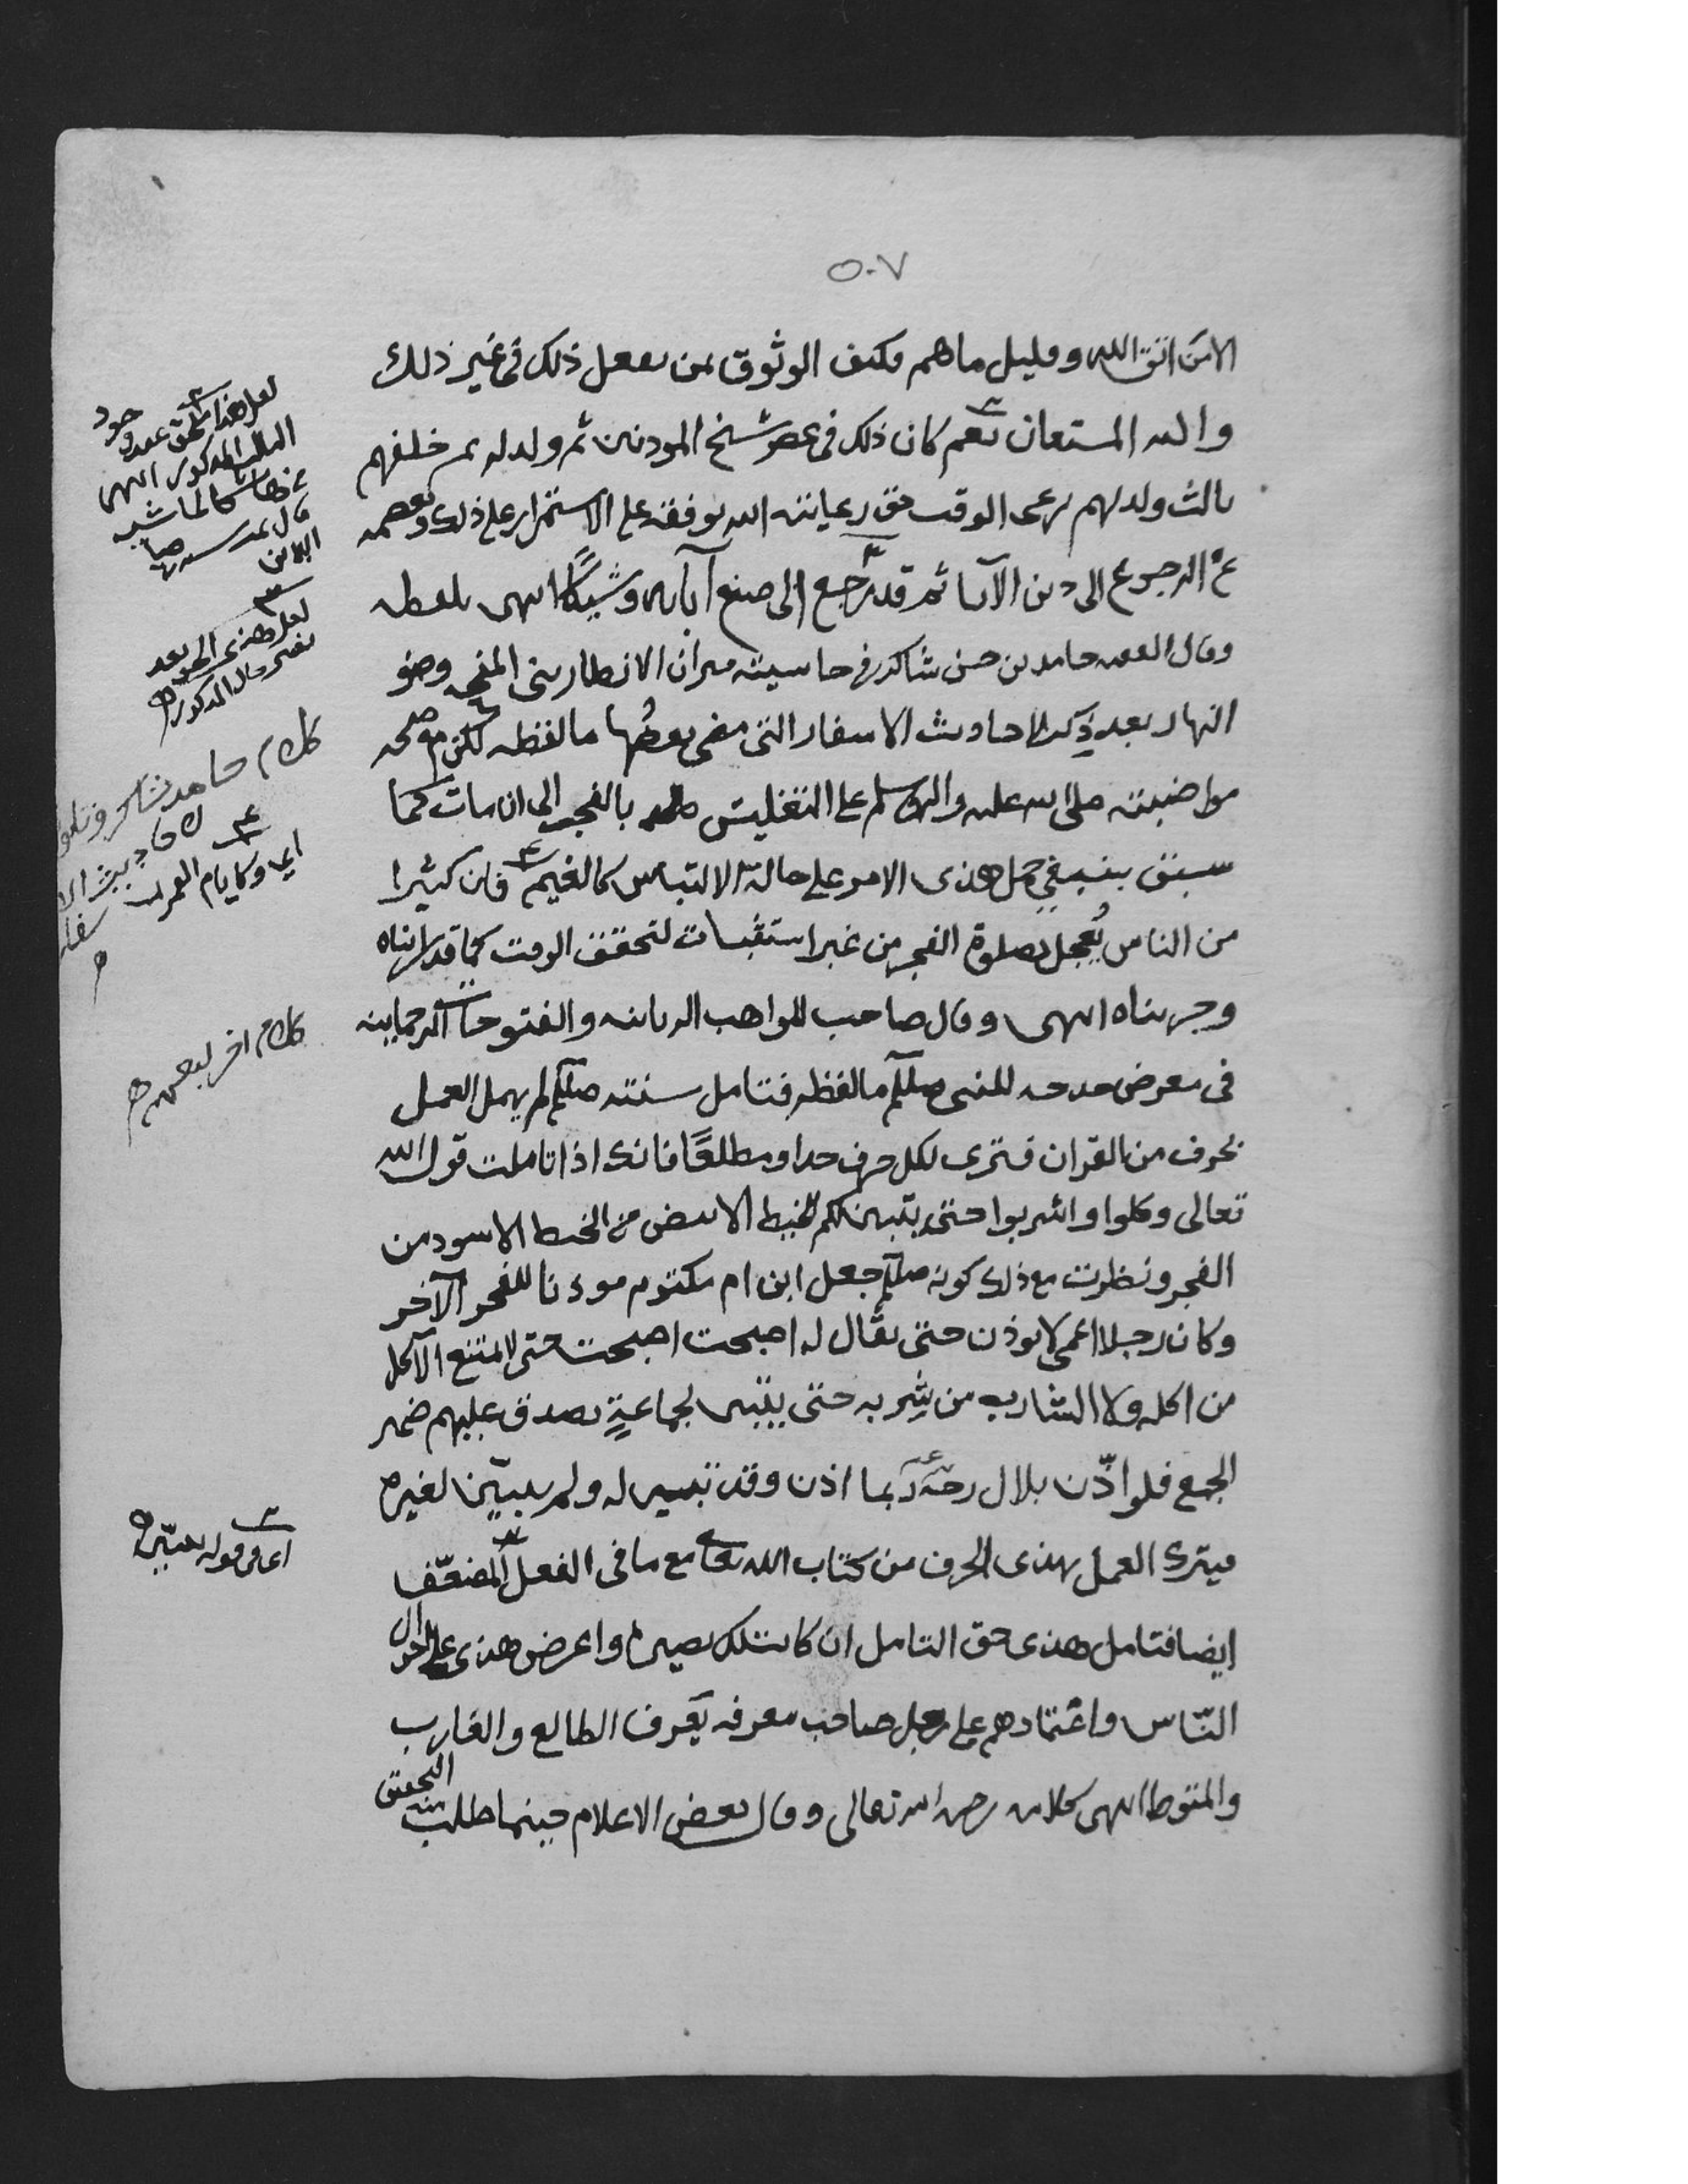 ٥٠٧
الا من اتقى الله وقليل ما هم فكيف الوثوق بمن يفعل ذلك في غير ذلك
والله المستعان نعم كان ذلك في عصر شيخ المؤذنين ثم ولد له ثم خلفهم
ثالث ولد لهم يرعى الوقت حق رعايته الله يوفقه على الاستمرار على ذلك ويعصمه
عن الرجوع الى دين الآباء ثم قد رجع الى صنع آبائه وشيكًا انتهى بلفظه
وقال الفقيه حامد بن حسن شاكر في حاشيته ميزان الانظار بين المنحه وضو
النهار بعد ذكر احاديث الاسفار التي مضى بعضُها ما لفظه لكن مع صحه
مواضبته صلى الله عليه واله وسلم على التغليس بالفجر الى ان مات كما
سبق ينبغي حمل هذى الامر على حالة الالتباس كالغيم فان كثيرا
من الناس يُعجل بصلوة الفجر من غير استثبات لتحقق الوقت كما قد رايناه
وجربناه انتهى وقال صاحب المواهب الربانيه والفتوحات الرحمانيه
في معرض مدحه للنبي صللم ما لفظه فتامل سنته صللم لم يهمل العمل
بحرف من القران فترى لكل حرف حدا ومطلعًا فانك اذا تاملت قول الله
تعالى وكلوا واشربوا حتى يتبين لكم الخيط الابيض من الخيط الاسود من
الفجر ونظرت مع ذلك كونه صللم جعل ابن ام مكتوم موذنا للفجر الآخر
وكان رجلا اعمى لا يوذن حتى يقال له اصبحت اصبحت حتى لا يمتنع الآكل
من اكله ولا الشارب من شربه حتى يتبين لجماعةٍ يصدق عليهم ضمير
الجمع فلو اذّن بلال ربما اذن وقد تبين له ولم يتبيّن لغيره
فيترك العمل بهذى الحرف من كتاب الله تعا مع ما في الفعل المضعّف
ايضا فتامل هذى حق التامل ان كانت لك بصيره واعرض هذى على احوال
النّاس واعتمادهم على رجل صاحب معرفه يعرف الطالع والغارب
والمتوسط انتهى كلامه رحمه الله تعالى وقال بعض الاعلام حينما طلب منه التحقيق
لعل هذا ملحق عند وجود
الثالث المذكور انتهى
لعل هذى الحق بعد
تغير حال المذكور
كلام حامد شاكر وتاويله
لاحاديث الاسفار
اي وكايام القمر
كلام اخر لبعضهم
اي في قوله يتبيّن